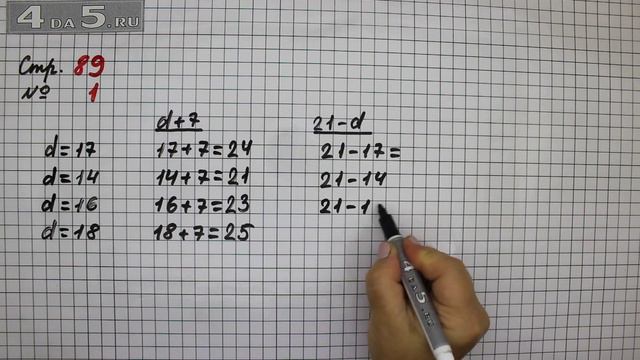 4 DA 5.RU
Стр. 89
№ 1
d+7 21-d
d=17 17+7=24 21-17=
d=14 14+7=21 21-14
d=16 16+7=23 21-1
d=18 18+7=25
4 DA 5.RU